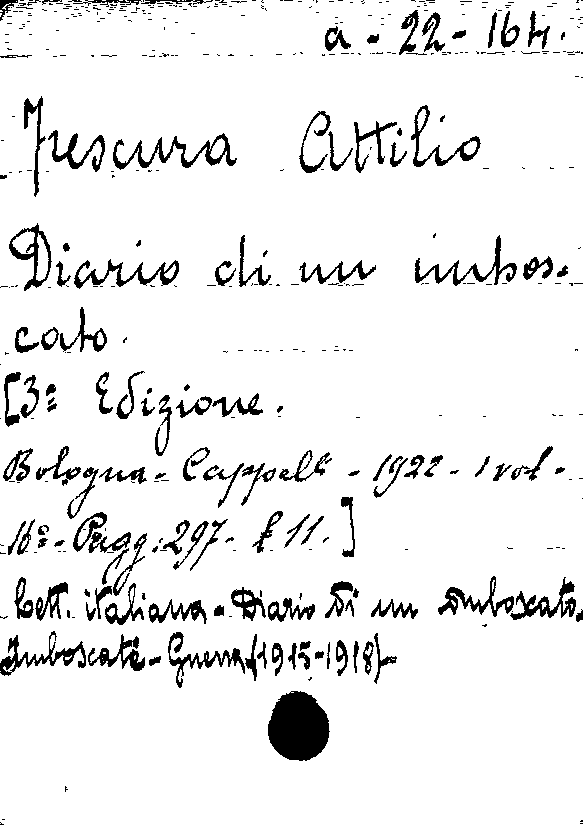 a - 22 - 164.
Frescura Attilio
Diario di un imbos-
cato.
[3ª Edizione.
Bologna - Cappelli - 1922 - 1 vol -
16º - Pagg. 297 - £ 11.]
Lett. italiana - Diario di un imboscato.
Imboscati - Guerra (1915-1918) -